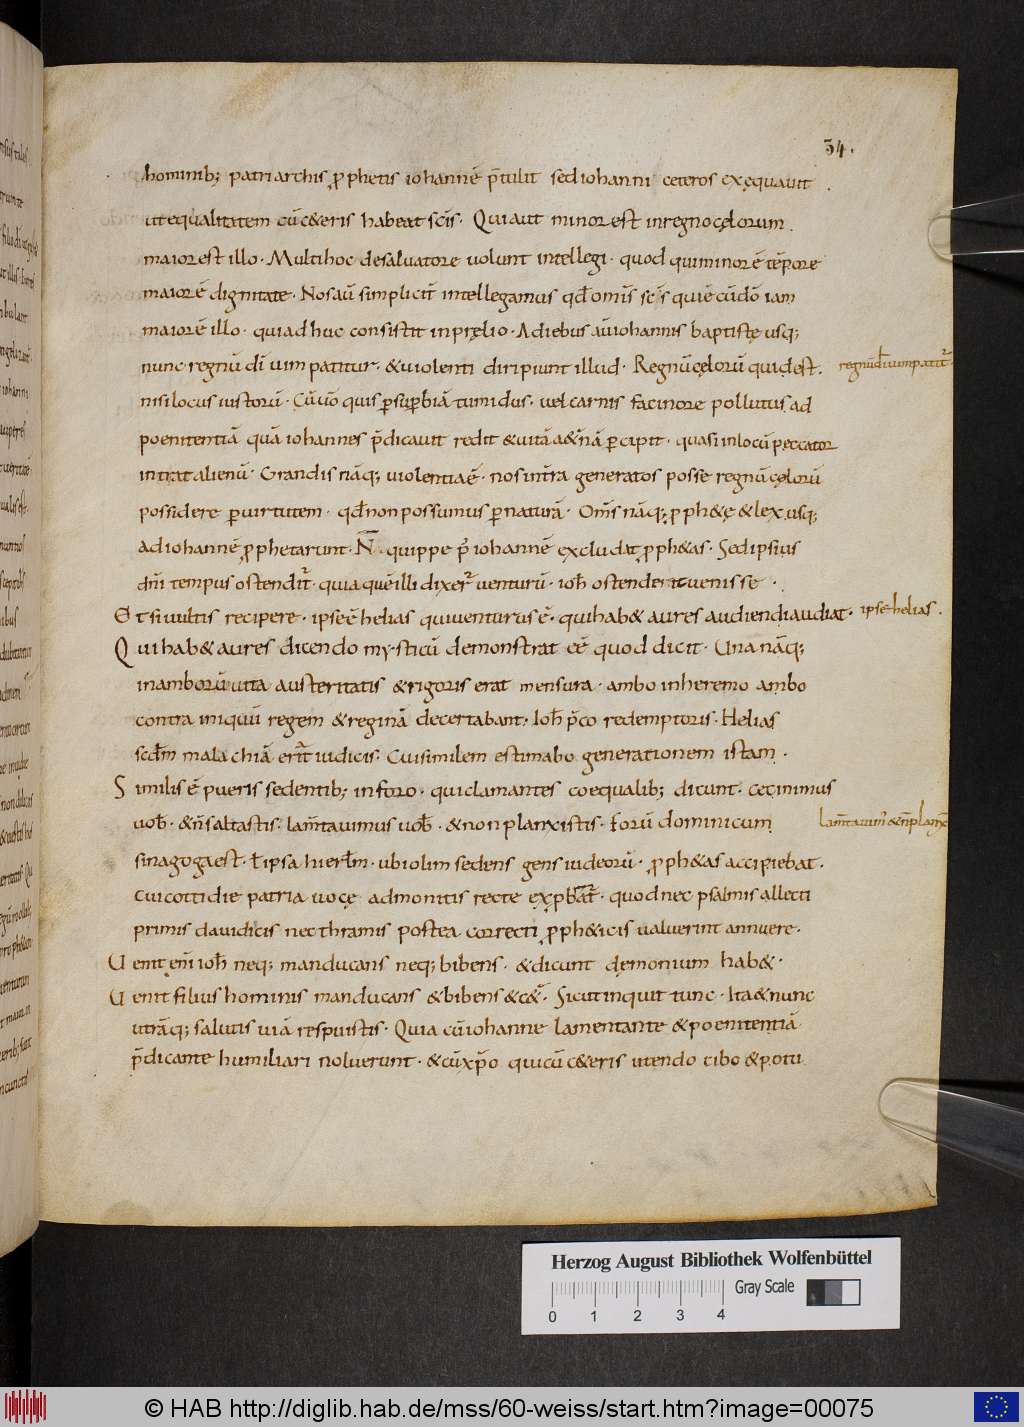 34.
hominib; patriarchis ꝓphetis iohannē p̄tulit sed iohanni ceteros exęquauit .
ut equalitatem cū c&eris habeat sc̄is· Qui aut minor est in regno cęlorum .
maior est illo· Multi hoc de saluatore uolunt intellegi· quod qui minor ē tēpore
maior ē dignitate· Nos aū simplicit̄ intellegamus qđ om̄is sc̄s qui ē cū dō iam
maior ē illo· qui adhuc consistit in pręlio· A diebus aū iohannis baptistę usq;
nunc regnū dī uim patitur· & uiolenti diripiunt illud· Regnū cęlorū quid est.
regnū dī uim patit᷑
nisi locus iustorū· Cū uō quis ꝑ suꝑbiā tumidus· uel carnis facinore pollutus ad
poenitentiā quā iohannes p̄dicauit redit & uitā a&̄nā ꝑcipit· quasi in locū peccator
intrat alienū· Grandis nāq; uiolentia ē· nos in t̄ra generatos posse regnū cęlorū
possidere ꝑ uirtutem· qđ non possumus ꝑ naturā· Om̄s nāq; ꝓph&ę & lex usq;
ad iohannē ꝓphetarunt· N̄ quippe p᷒ iohannē excludat ꝓph&as· Sed ipsius
dn̄i tempus ostendit᷑· quia quē illi dixer᷑ uenturū· ioh̄ ostenderit uenisse .
Et si uultis recipere· ipse ē helias qui uenturus ē· qui hab& aures audiendi audiat·
ipse ē helias .
Qui hab& aures dicendo mysticū demonstrat eē quod dicit· Una nāq;
in amborū uita austeritatis & rigoris erat mensura· ambo in heremo ambo
contra iniquū regem & reginā decertabant· Ioh̄ p̄co redemptoris· Helias
scdm̄ malachiā erit᷑ iudicis· Cui similem estimabo generationem istam .
Similis ē pueris sedentib; in foro· qui clamantes coequalib; dicunt· cecinimus
uob̄· & n̄ saltastis· lam̄tauimus uob̄· & non planxistis· Forū dominicum
lam̄tauim᷒ & n̄ planx̄
sinagoga est· ł ipsa hierłm· ubi olim sedens gens iudeorū· ꝓph&as accipiebat.
cui cottidie patria uocę admonitis recte exꝓbat᷑· quod nec psalmis allecti
primis dauidicis nec thramis postea correcti ꝓph&icis ualuerint annuere·
Uenit eni᷑ ioh̄ neq; manducans neq; bibens· & dicunt demonium hab&·
Uenit filius hominis manducans & bibens & c&᷑· Sicut inquit tunc· Ita & nunc
utrāq; salutis uiā respuistis· Quia cū iohanne lamentante & poenitentiā
p̄dicante humiliari noluerunt· & cū xp̄o qui cū c&eris utendo cibo & potu
Herzog August Bibliothek Wolfenbüttel
Gray Scale
0 1 2 3 4
© HAB http://diglib.hab.de/mss/60-weiss/start.htm?image=00075